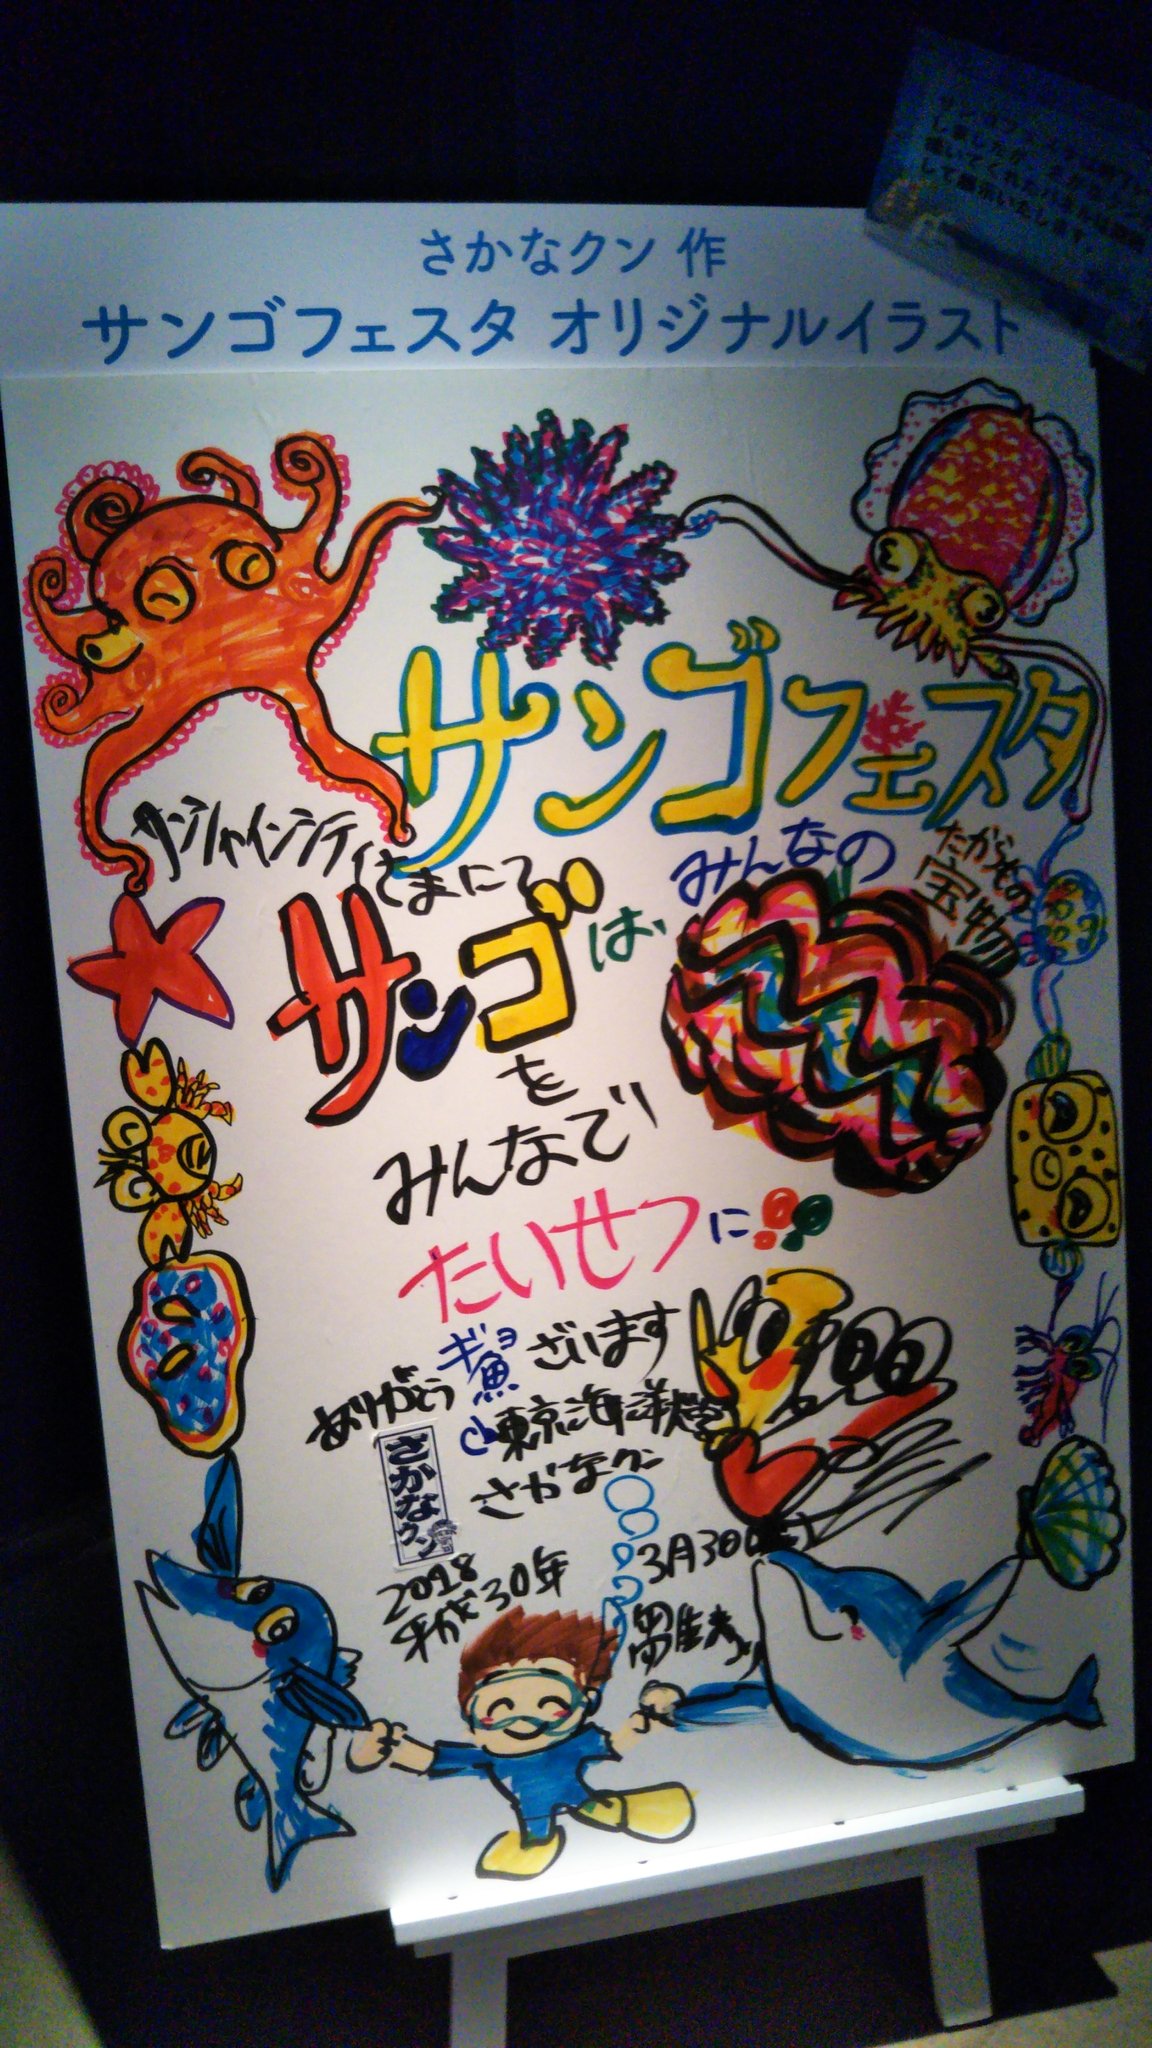 さかなクン 作
サンゴフェスタ オリジナルイラスト
サンゴフェスタ
サンシャインシティさまにて
サンゴは
みんなの
たからもの
宝物
を
みんなで
たいせつに
ありがとうギョ魚ざいます
東京海洋大学
さかなクン
さかなクン
2018
平成30年
3月30日